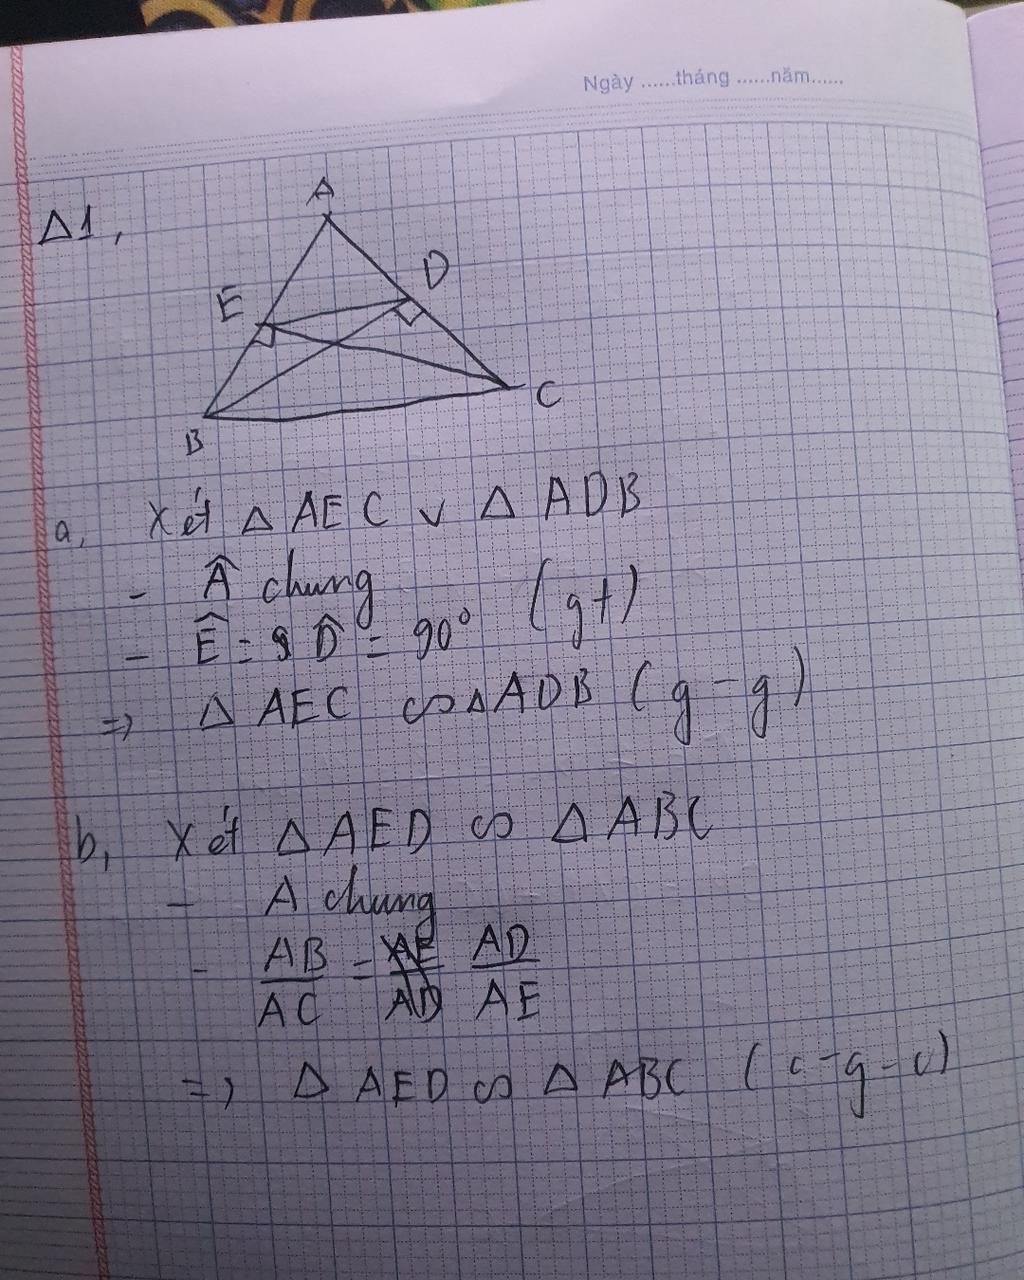 Ngày ......tháng ......năm......
Δ1,
A
E
D
B
C
a, Xét Δ AEC v Δ ADB
- Â chung
- Ê = D̂ = 90° (gt)
=> Δ AEC ∽ Δ ADB (g-g)
b, Xét Δ AED ∽ Δ ABC
- A chung
- AB/AC = AD/AE
=> Δ AED ∽ Δ ABC (c-g-c)